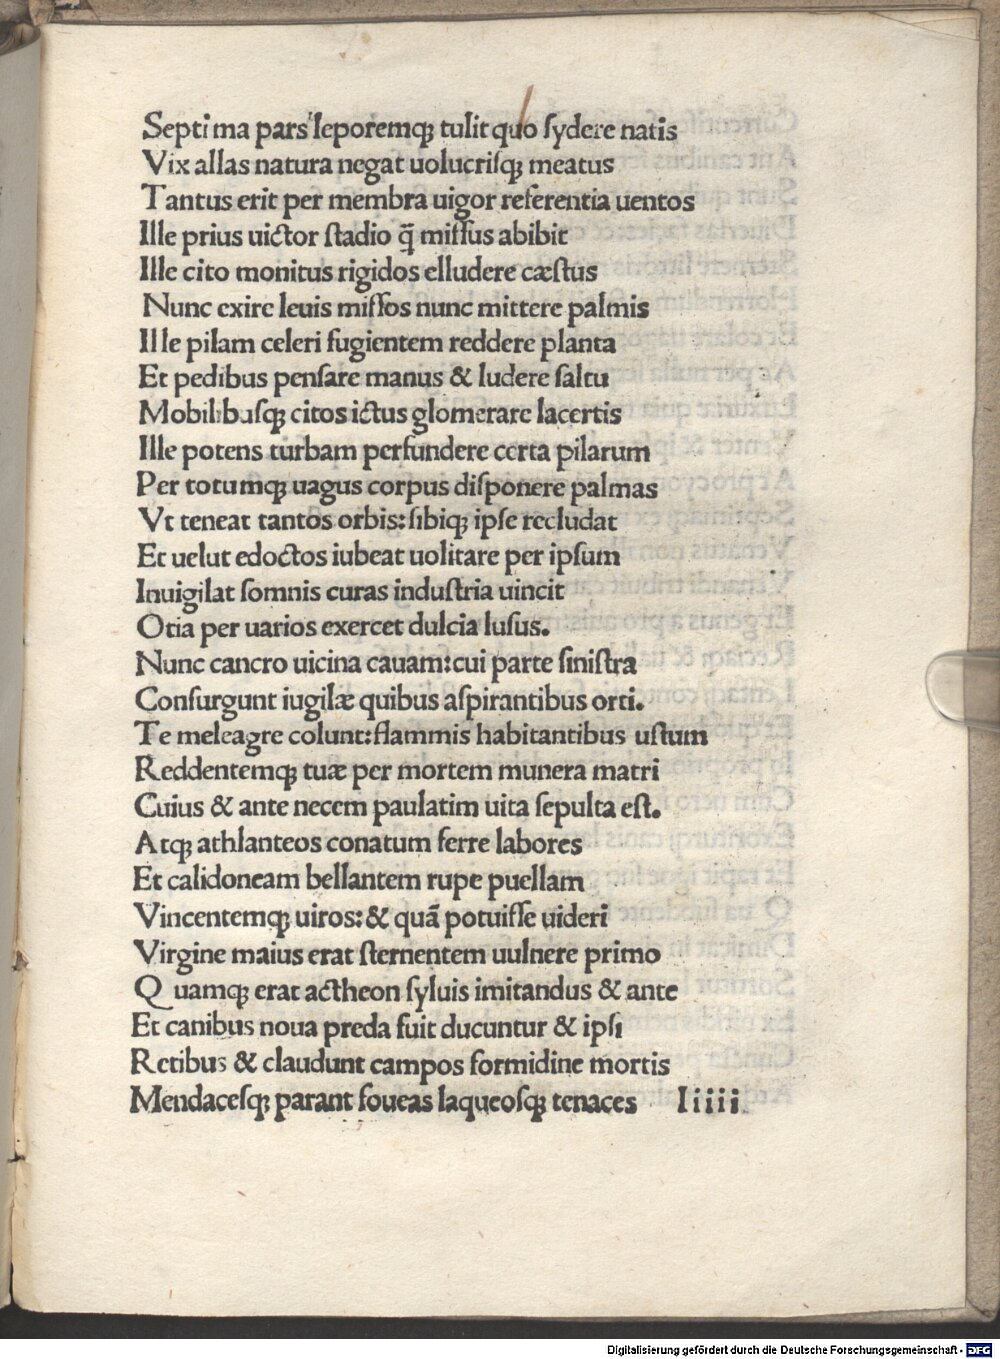 Septima pars leporemqꝫ tulit quo ſydere natis
Vix allas natura negat uolucriſqꝫ meatus
Tantus erit per membra uigor referentia uentos
Ille prius uictor ſtadio q̄ miſſus abibit
Ille cito monitus rigidos elludere cæſtus
Nunc exire leuis miſſos nunc mittere palmis
Ille pilam celeri fugientem reddere planta
Et pedibus penſare manus & ludere ſaltu
Mobilibuſqꝫ citos ictus glomerare lacertis
Ille potens turbam perfundere certa pilarum
Per totumqꝫ uagus corpus diſponere palmas
Vt teneat tantos orbis: ſibiqꝫ ipſe recludat
Et uelut edoctos iubeat uolitare per ipſum
Inuigilat ſomnis curas induſtria uincit
Otia per uarios exercet dulcia luſus.
Nunc cancro uicina cauam: cui parte ſiniſtra
Conſurgunt iugilæ quibus aſpirantibus orti.
Te meleagre colunt: flammis habitantibus uſtum
Reddentemqꝫ tuæ per mortem munera matri
Cuius & ante necem paulatim uita ſepulta eſt.
Atqꝫ athlanteos conatum ferre labores
Et calidoneam bellantem rupe puellam
Vincentemqꝫ uiros: & quā potuiſſe uideri
Virgine maius erat ſternentem uulnere primo
Quamqꝫ erat actheon ſyluis imitandus & ante
Et canibus noua preda fuit ducuntur & ipſi
Retibus & claudunt campos formidine mortis
Mendaceſqꝫ parant foueas laqueoſqꝫ tenaces Iiiii
Digitalisierung gefördert durch die Deutsche Forschungsgemeinschaft - DFG